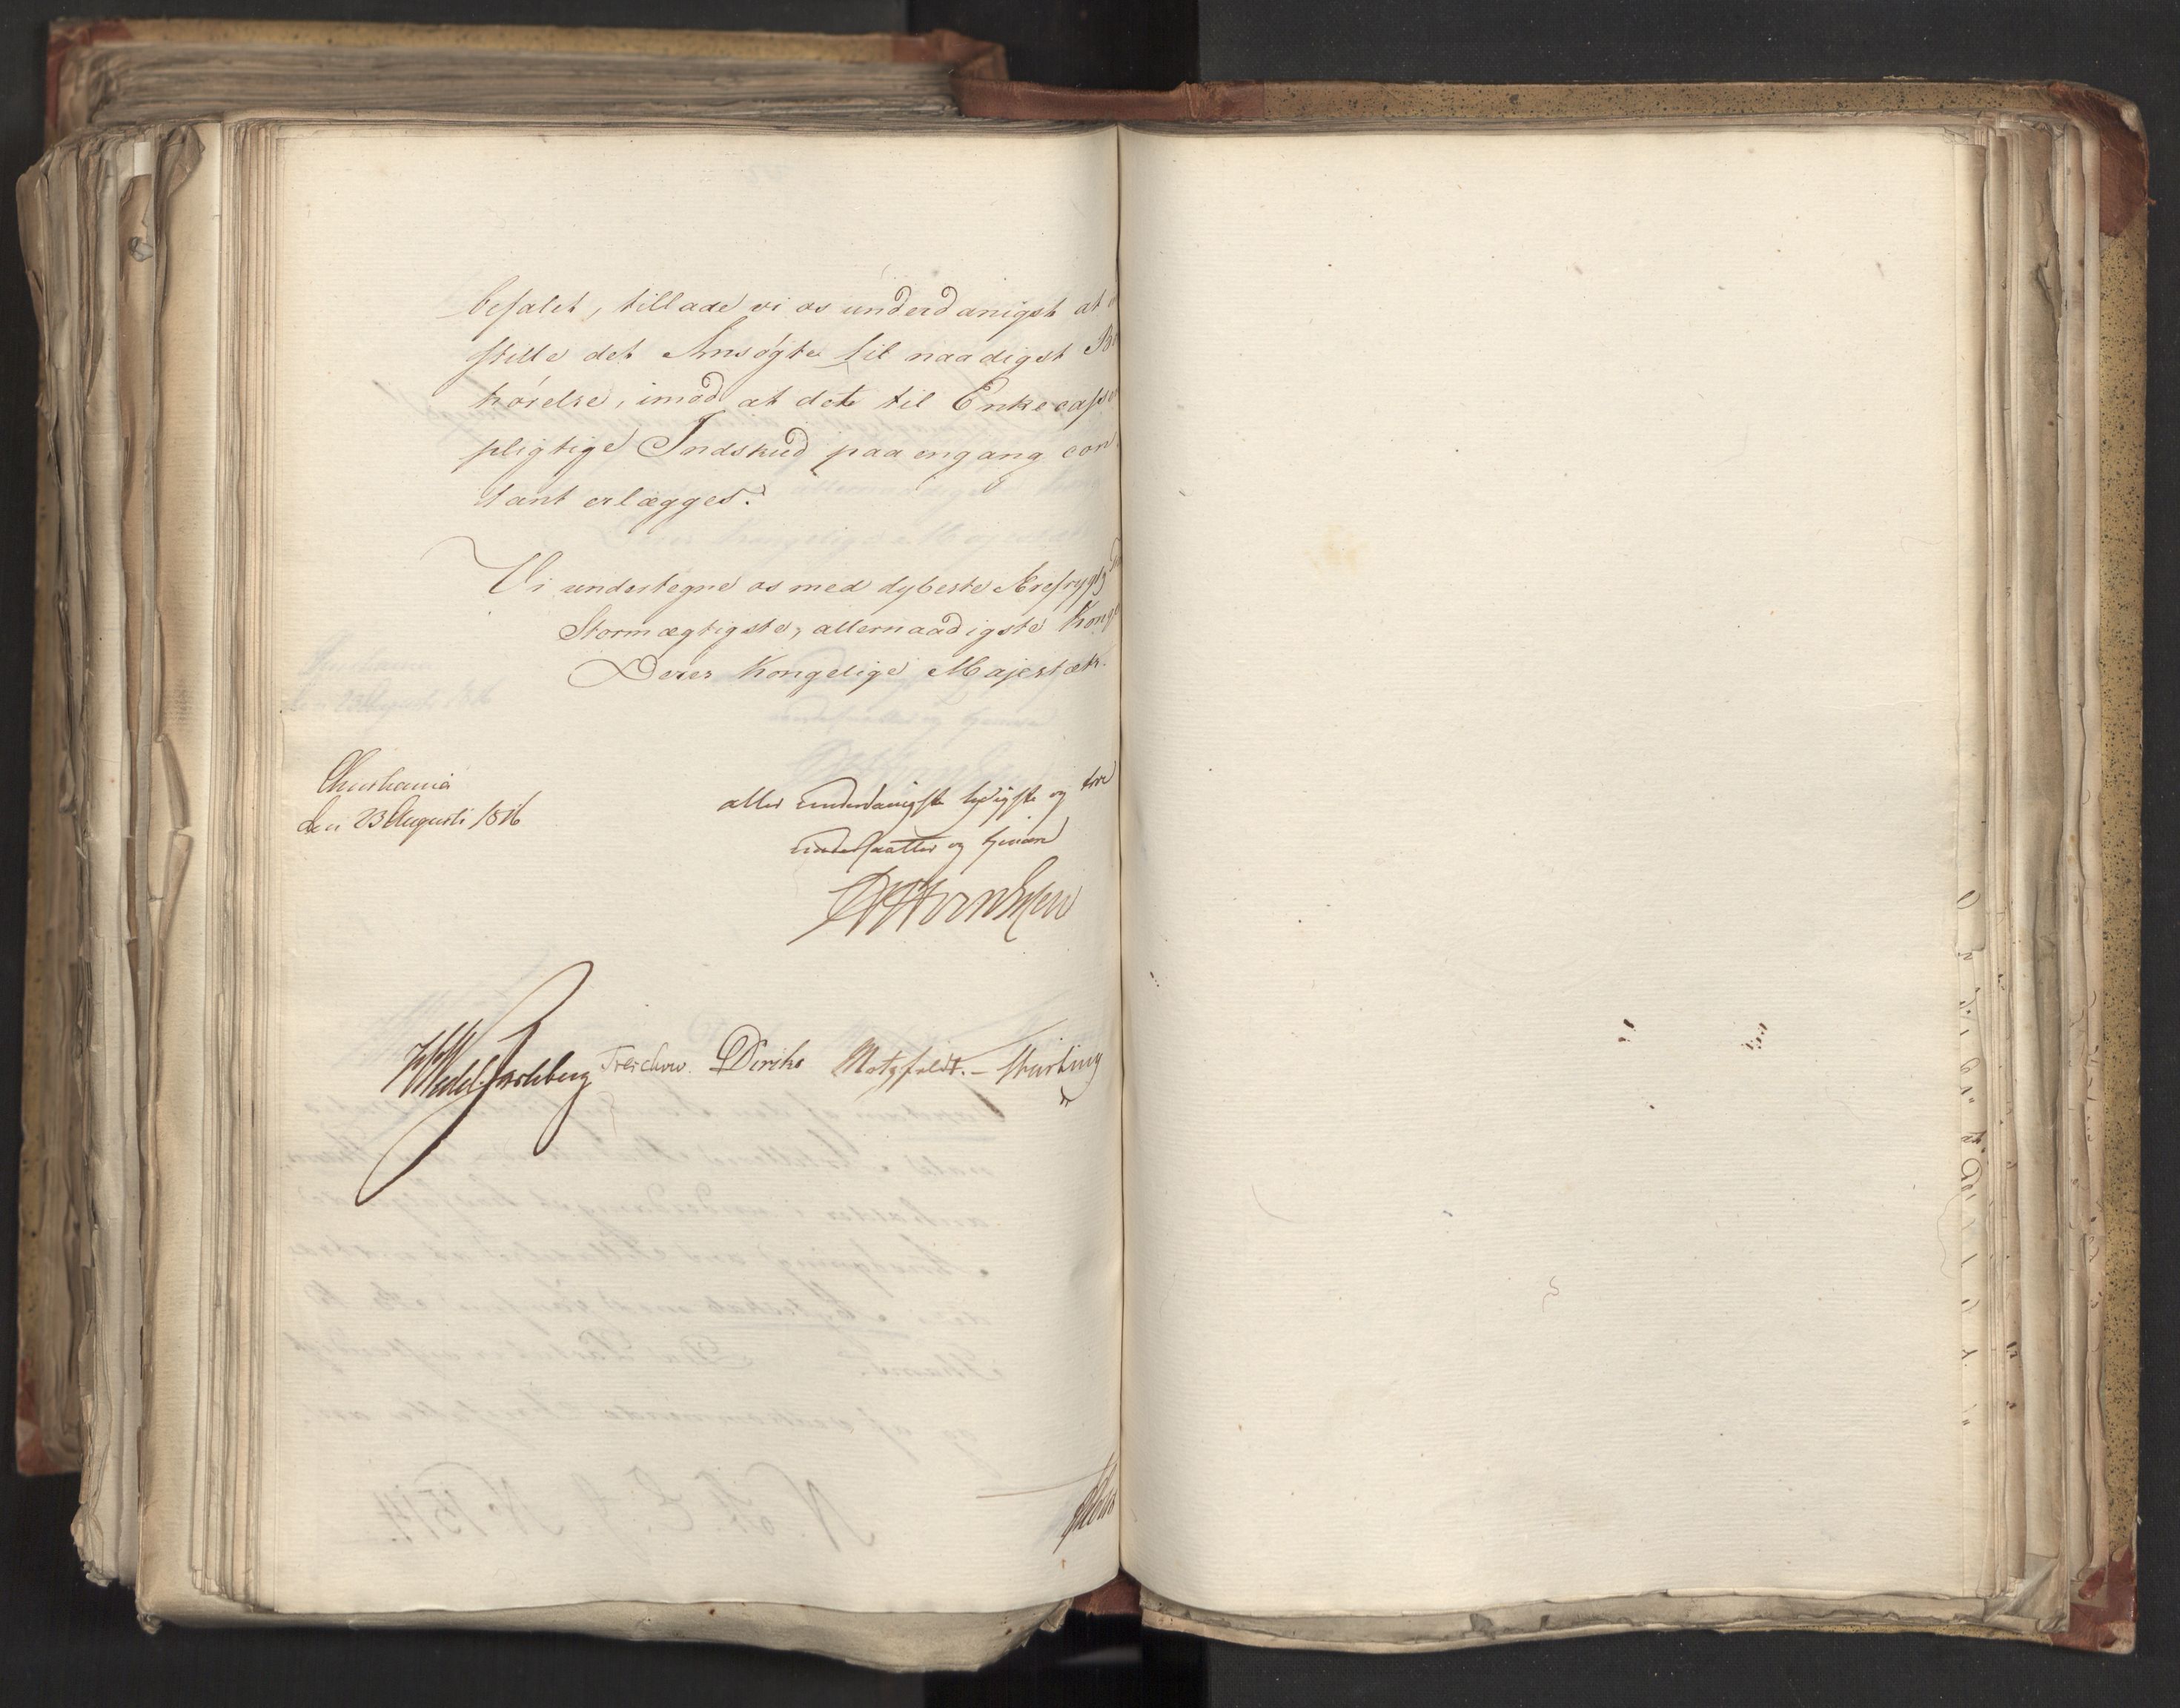 befalet, tillade vi os underdanigst at
stille det Ansøgte til naadigst Bø
hørelse, imod at dete til Enkecasse
pligtige Indskud paa engang con
tant erlægges.
Vi undertegne os med dybeste Ærefrygt
Stormægtigste, allernaadigste Konge
Deres Kongelige Majestæts.
Christiania
den 23 Augusti 1816
aller underdanigste lydigste og troe
undersaatter og tjenere
Wedel Jarlsberg Treschow. Diriks Motzfeldt. –